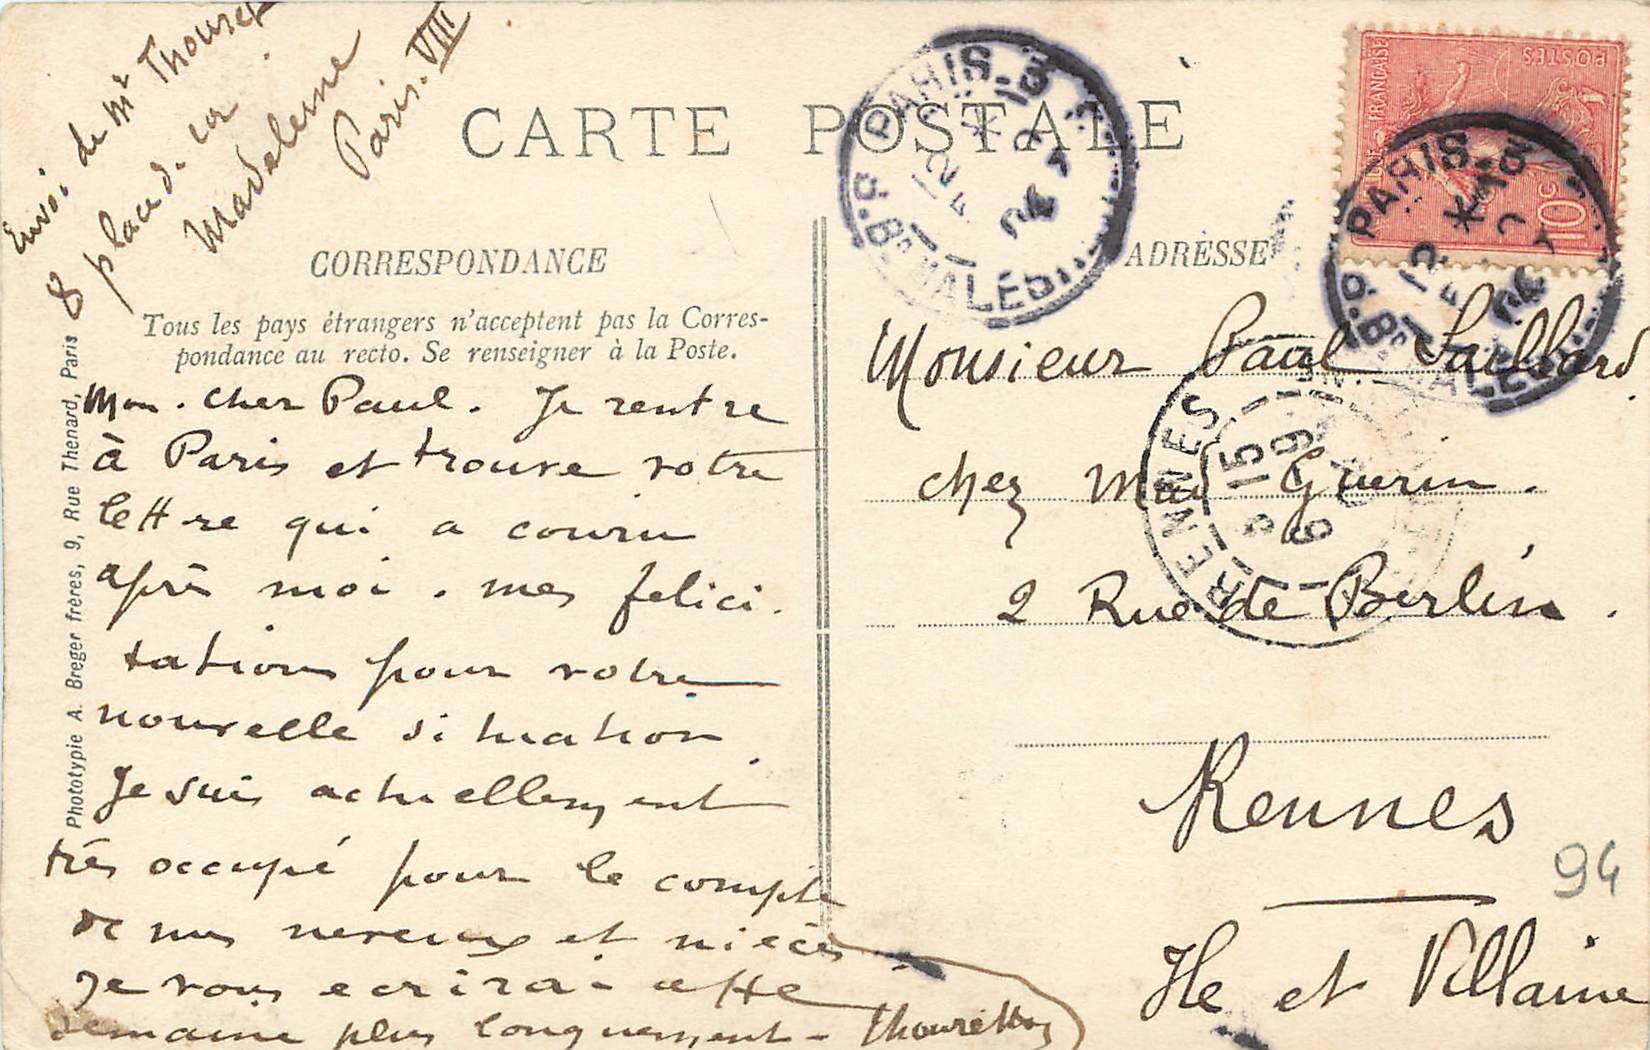 Envoi de Mr
8 place de la
Madeleine
Paris. VIII
CARTE POSTALE
CORRESPONDANCE
Tous les pays étrangers n'acceptent pas la Corres-
pondance au recto. Se renseigner à la Poste.
Mon. cher Paul. Je rentre
à Paris et trouve votre
lettre qui a couru
après moi. mes felici.
tations pour votre
nouvelle situation
Je suis actuellement
très occupé pour le compte
de mes neveux et nièces
Je vous ecrirai cette
semaine plus longuement -
Phototypie A. Breger frères, 9, Rue Thenard, Paris
ADRESSE
Monsieur Paul Saillard
chez Mad Guerin.
2 Rue de Berlin.
Rennes
Ile et Villaine
94
PARIS-3
R.P. FRANÇAISE
POSTES
10c
PARIS-3
RENNES
5 15